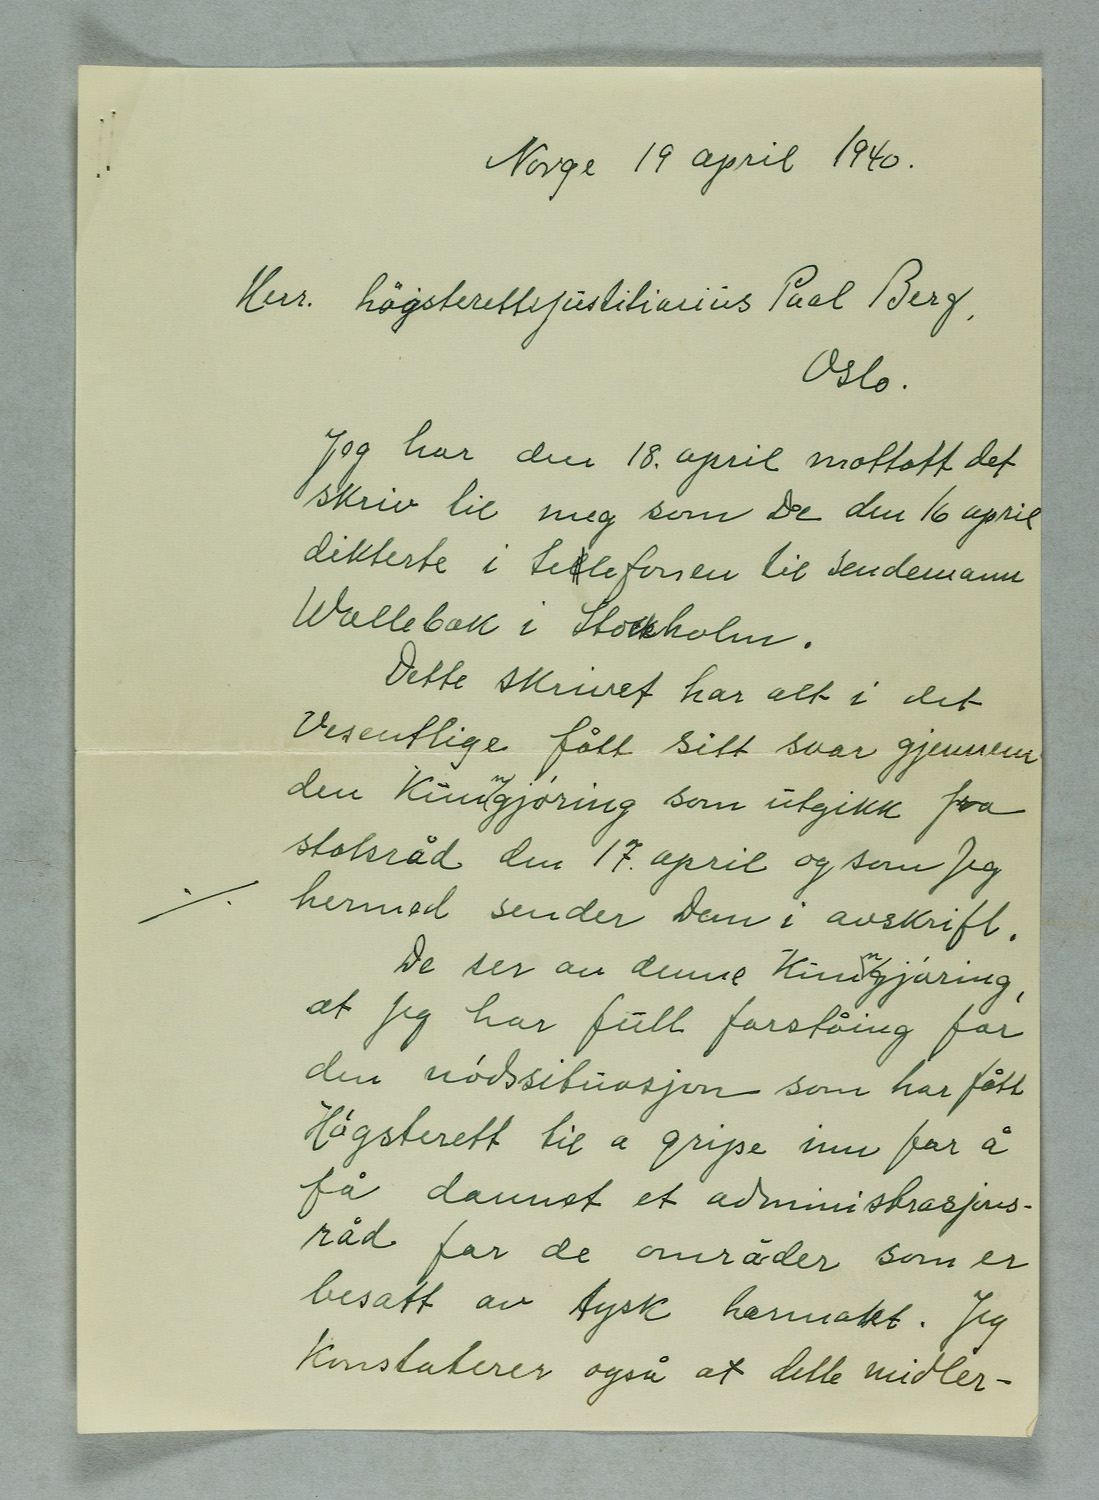 Norge 19 april 1940.
Herr. högsterettsjustitiarius Paal Berg,
Oslo.
Jeg har den 18. april mottatt det
skriv til meg som De den 16 april
dikterte i telefonen til sendemann
Wollebæk i Stockholm.
Dette skrivet har alt i det
vesentlige fått sitt svar gjennem
den kunngjöring som utgikk fra
statsråd den 17. april og som jeg
./. hermed sender Dem i avskrift.
De ser av denne kunngjöring,
at jeg har full forståing for
den nödssituasjon som har fått
Högsterett til a gripe inn for å
få dannet et administrasjons-
råd for de områder som er
besatt av tysk hærmakt. Jeg
konstaterer også at dette midler-